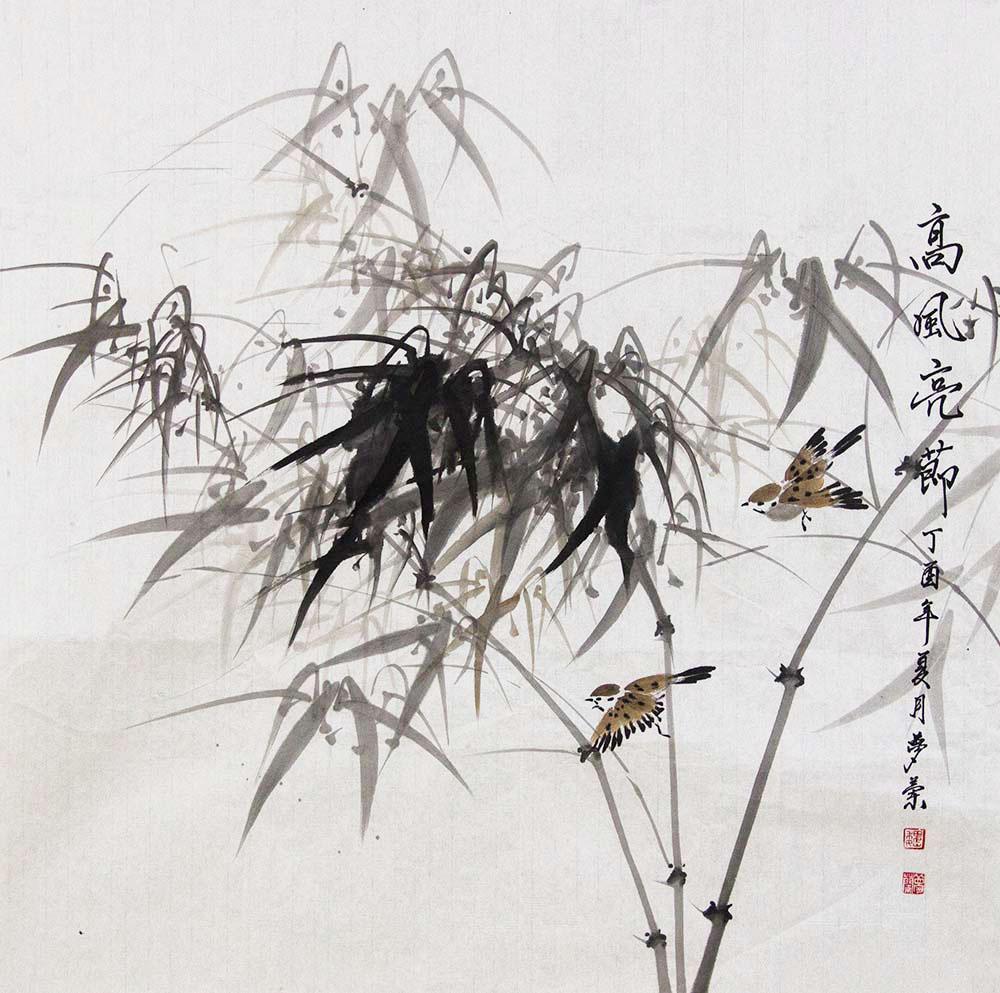 高風亮節丁酉年夏月夢